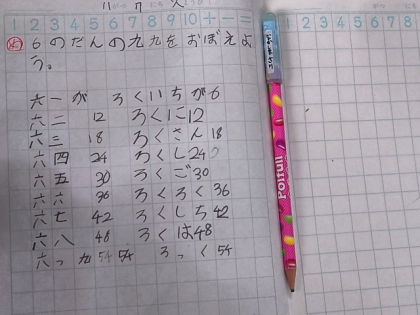 1 2 3 4 5 6 7 8 9 10 + - =
1 2 3 4 5 6 7 8
め 6のだんの九九をおぼえよ
う。
六一が ろくいちが6
六二 12 ろくに12
六三 18 ろくさん18
六四 24 ろくし24
六五 30 ろくご30
六六 36 ろくろく36
六七 42 ろくしち42
六八 48 ろくは48
六っ九 54 54 ろっく54
Poifull